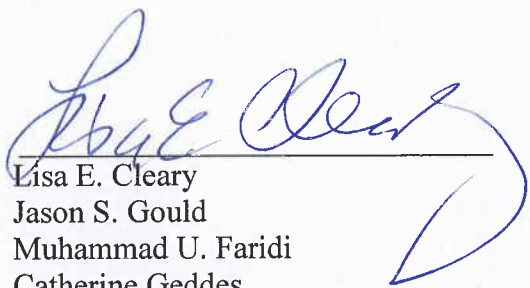 Lisa E Cleary
Lisa E. Cleary
Jason S. Gould
Muhammad U. Faridi
Catherine Geddes